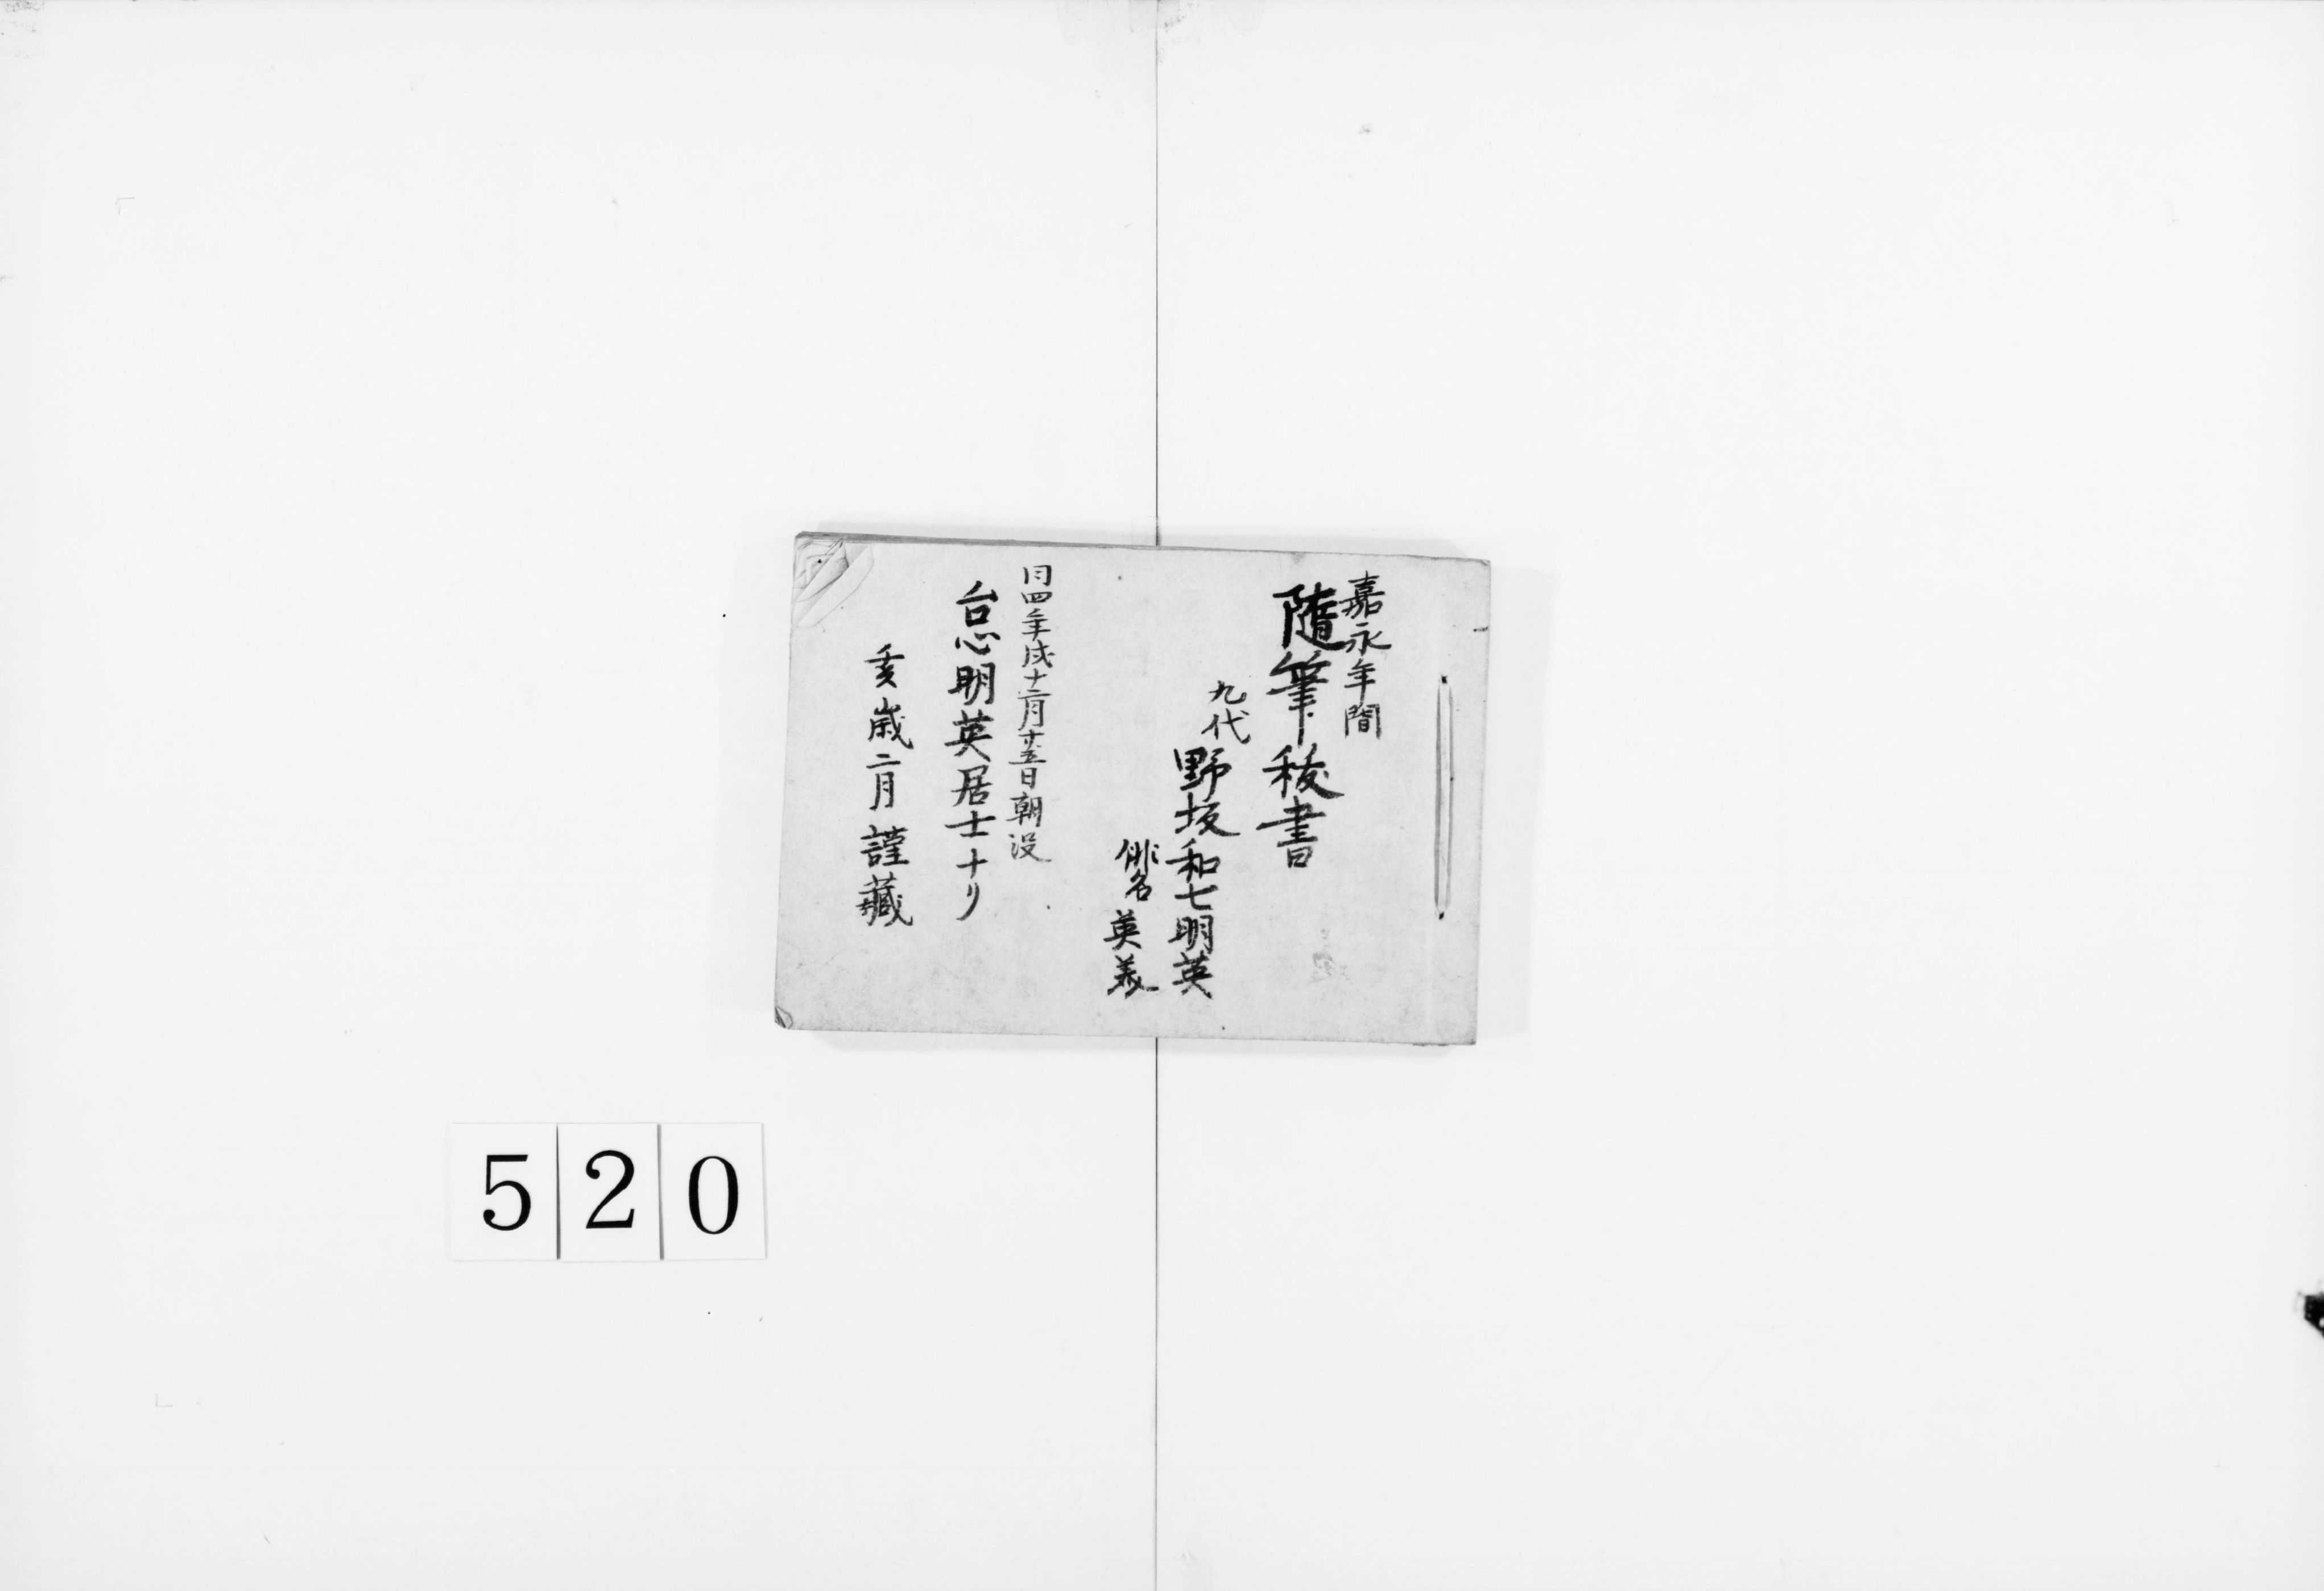 嘉永年間
隨筆秘書
九代
野坂和七明英
俳名 英
同四年戌十二月廿五日朝没
怠明英居士ナリ
亥歳二月 謹藏
520